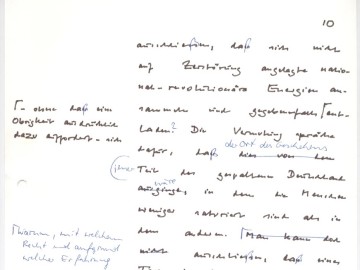 10
ausschließen, daß sich nicht
auf Zerstörung angelegte natio-
nal-revolutionäre Energien an-
sammeln und gegebenenfalls ent-
Laden? Die Vermutung spräche
der Ort des Geschehens
dafür, daß dies von dem
jener Teil des gespaltenen Deutschland
wäre
ausginge, in dem die Menschen
weniger saturiert sind als in
dem anderen. Man kann doch
nicht ausschließen, daß eine
- ohne daß eine
Obrigkeit ausdrücklich
dazu auffordert - sich
Warum, mit welchem
Recht und aufgrund
welcher Erfahrung